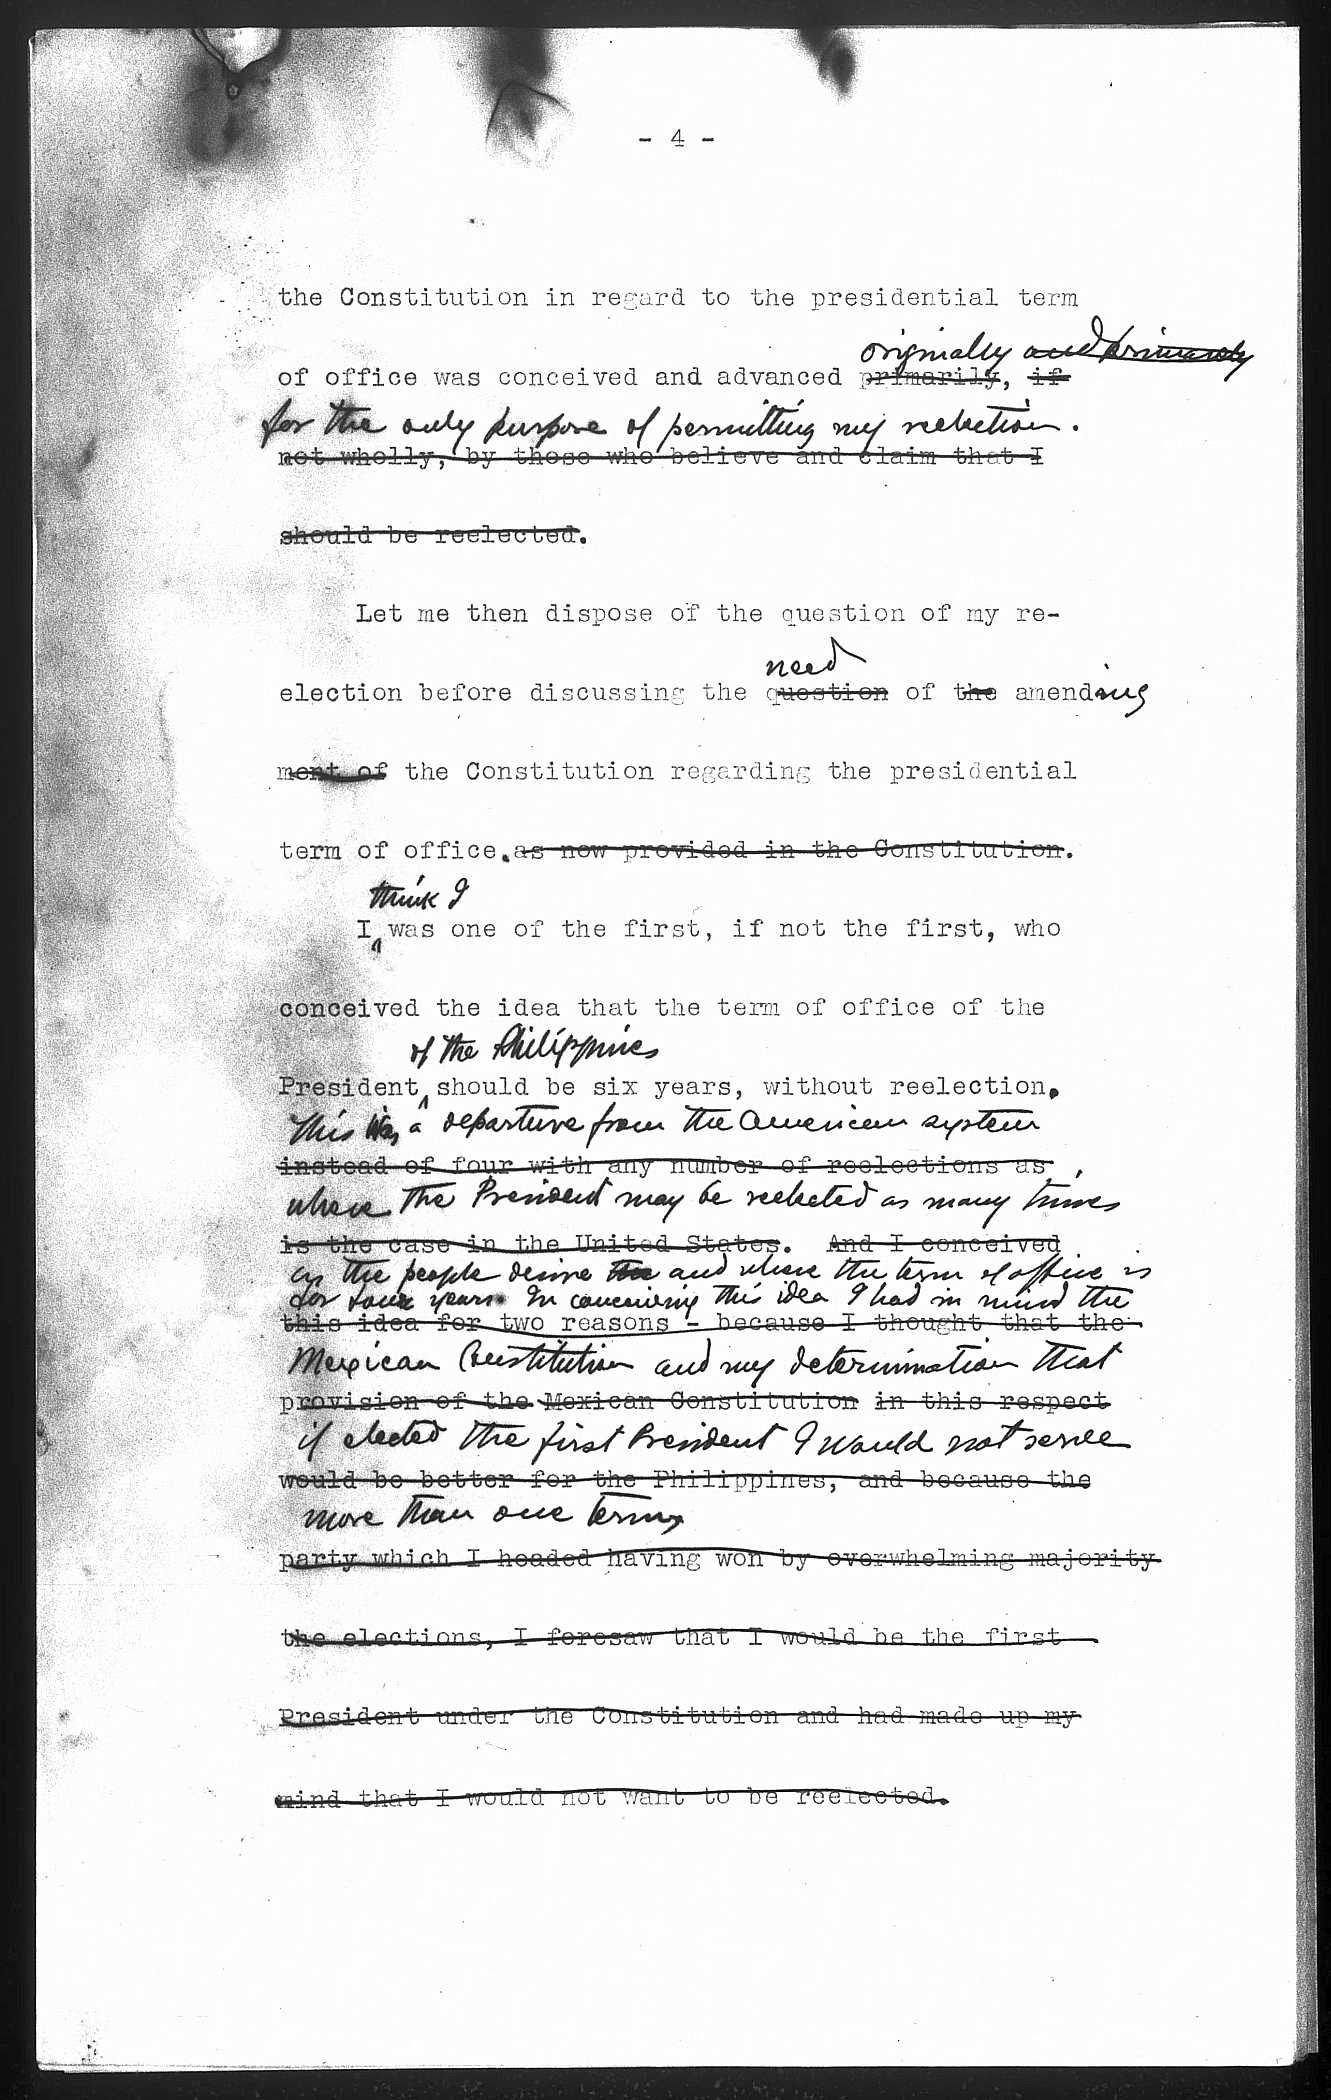 - 4 -
the Constitution in regard to the presidential term
originally and primarily
of office was conceived and advanced primarily, if
for the only purpose of permitting my reelection.
not wholly, by those who believe and claim that I
should be reelected.
Let me then dispose of the question of my re-
need
election before discussing the question of the amending
ment of the Constitution regarding the presidential
term of office. as now provided in the Constitution.
think I
I was one of the first, if not the first, who
conceived the idea that the term of office of the
of the Philippines
President should be six years, without reelection.
This was a departure from the American system
instead of four with any number of reelections as
where the President may be reelected as many times
is the case in the United States. And I conceived
as the people desire the and where the term of office is
for four years. In conceiving this idea I had in mind the
this idea for two reasons - because I thought that the
Mexican Constitution and my determination that
provision of the Mexican Constitution in this respect
if elected the first President I would not serve
would be better for the Philippines, and because the
more than one term
party which I headed having won by overwhelming majority
the elections, I foresaw that I would be the first
President under the Constitution and had made up my
mind that I would not want to be reelected.